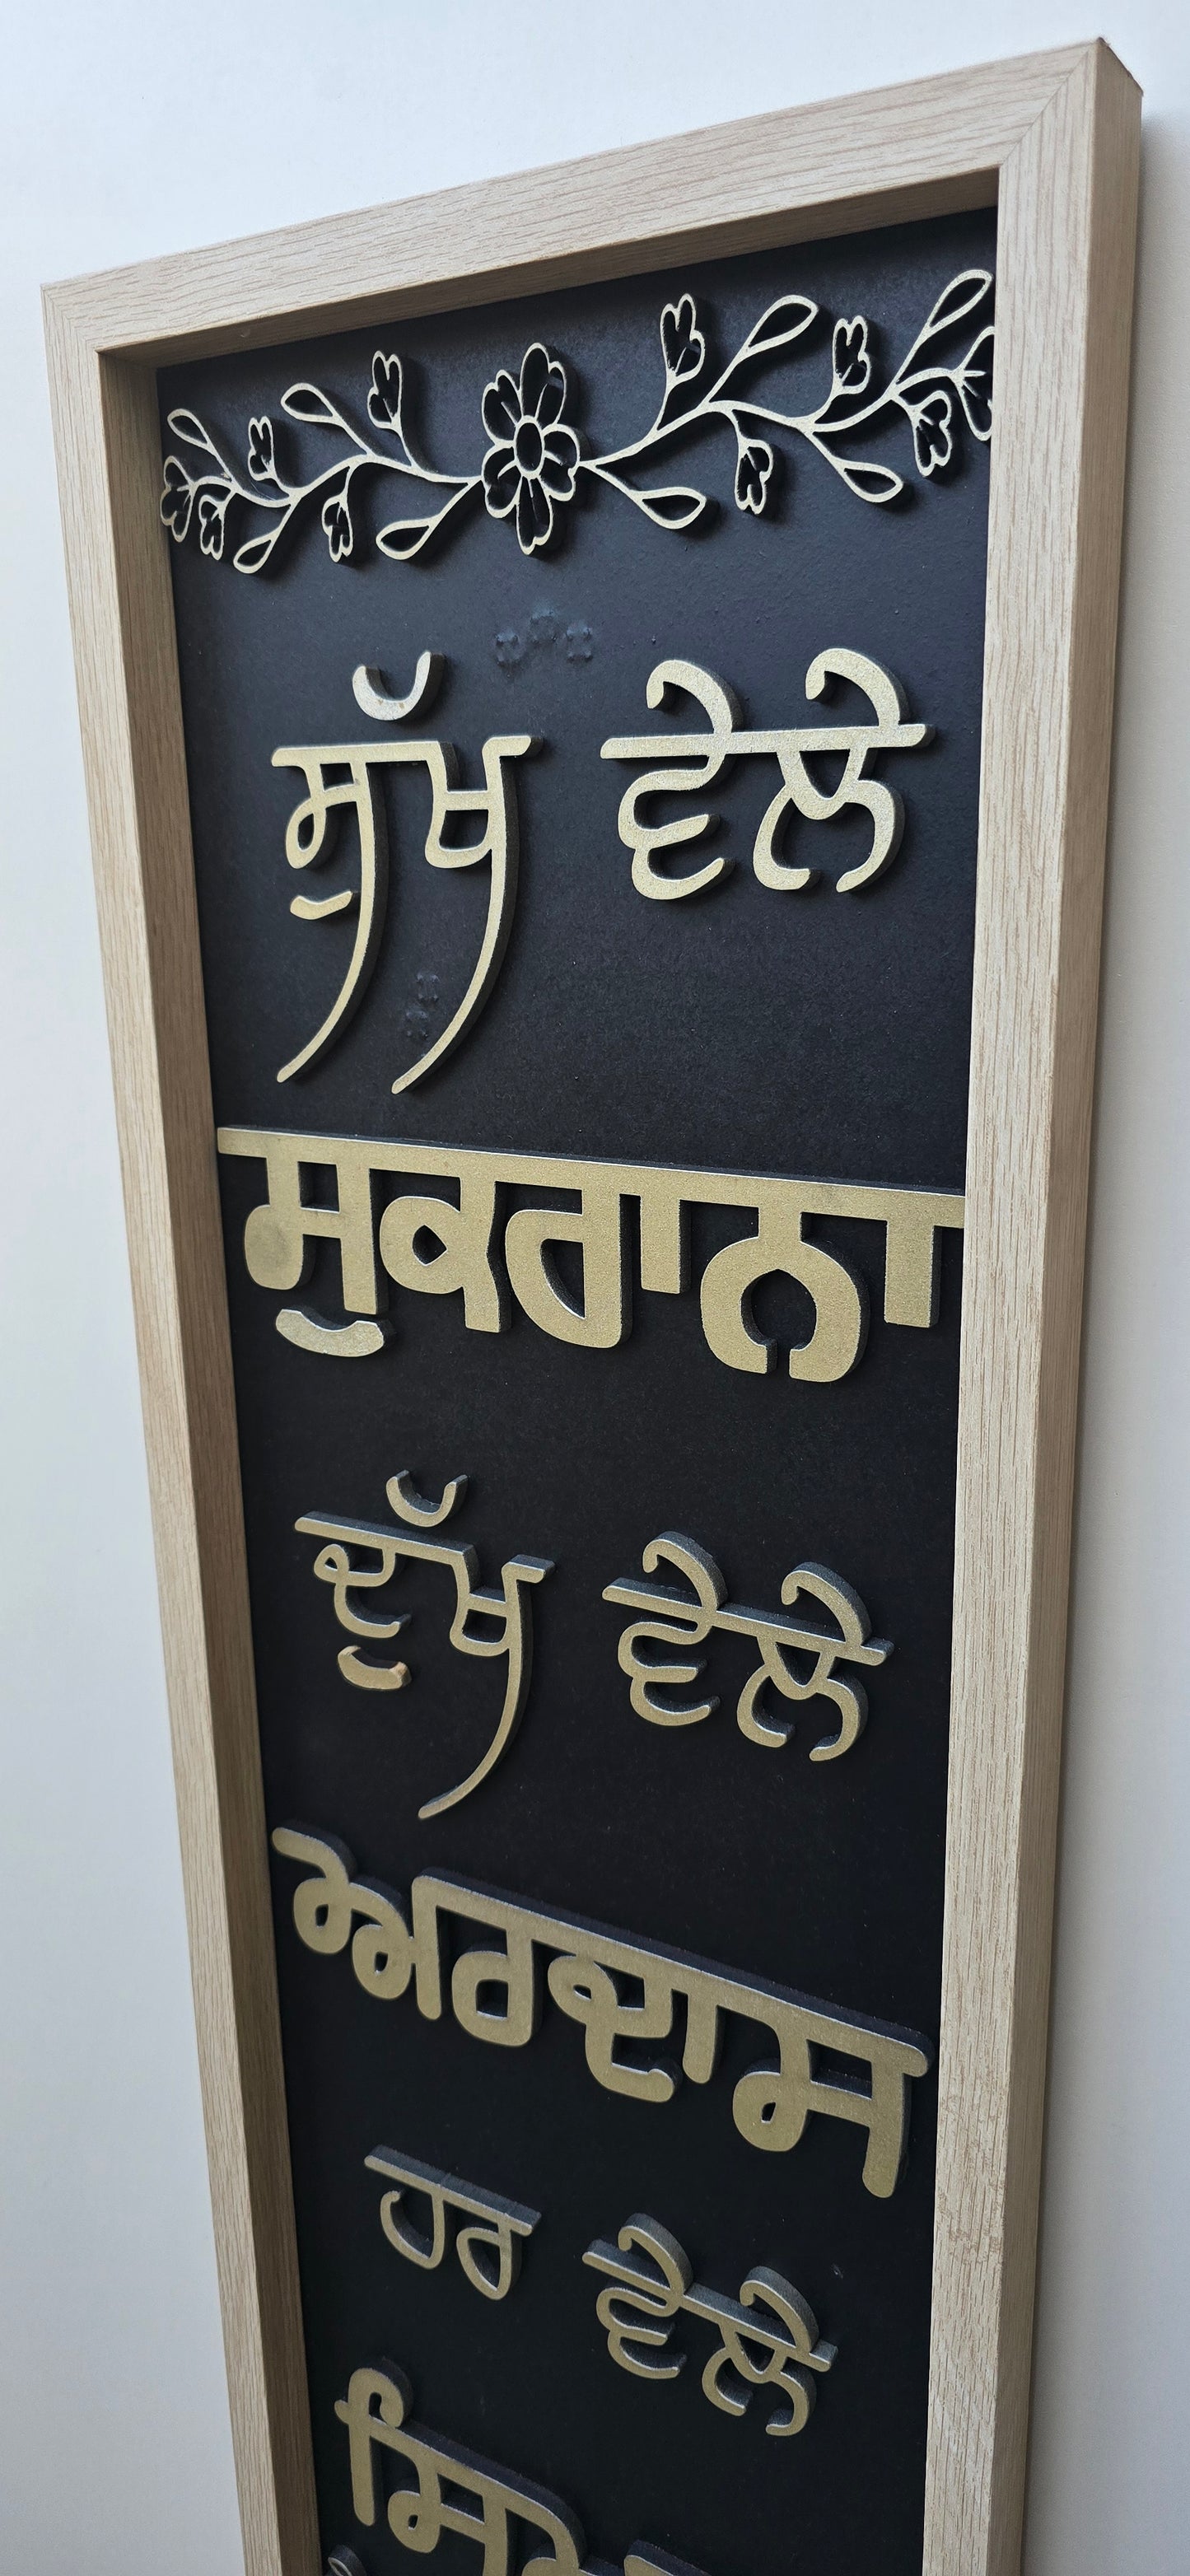 ਸੁੱਖ ਵੇਲੇ
ਸੁਕਰਾਨਾ
ਦੁੱਖ ਵੇਲੇ
ਅਰਦਾਸ
ਹਰ ਵੇਲੇ